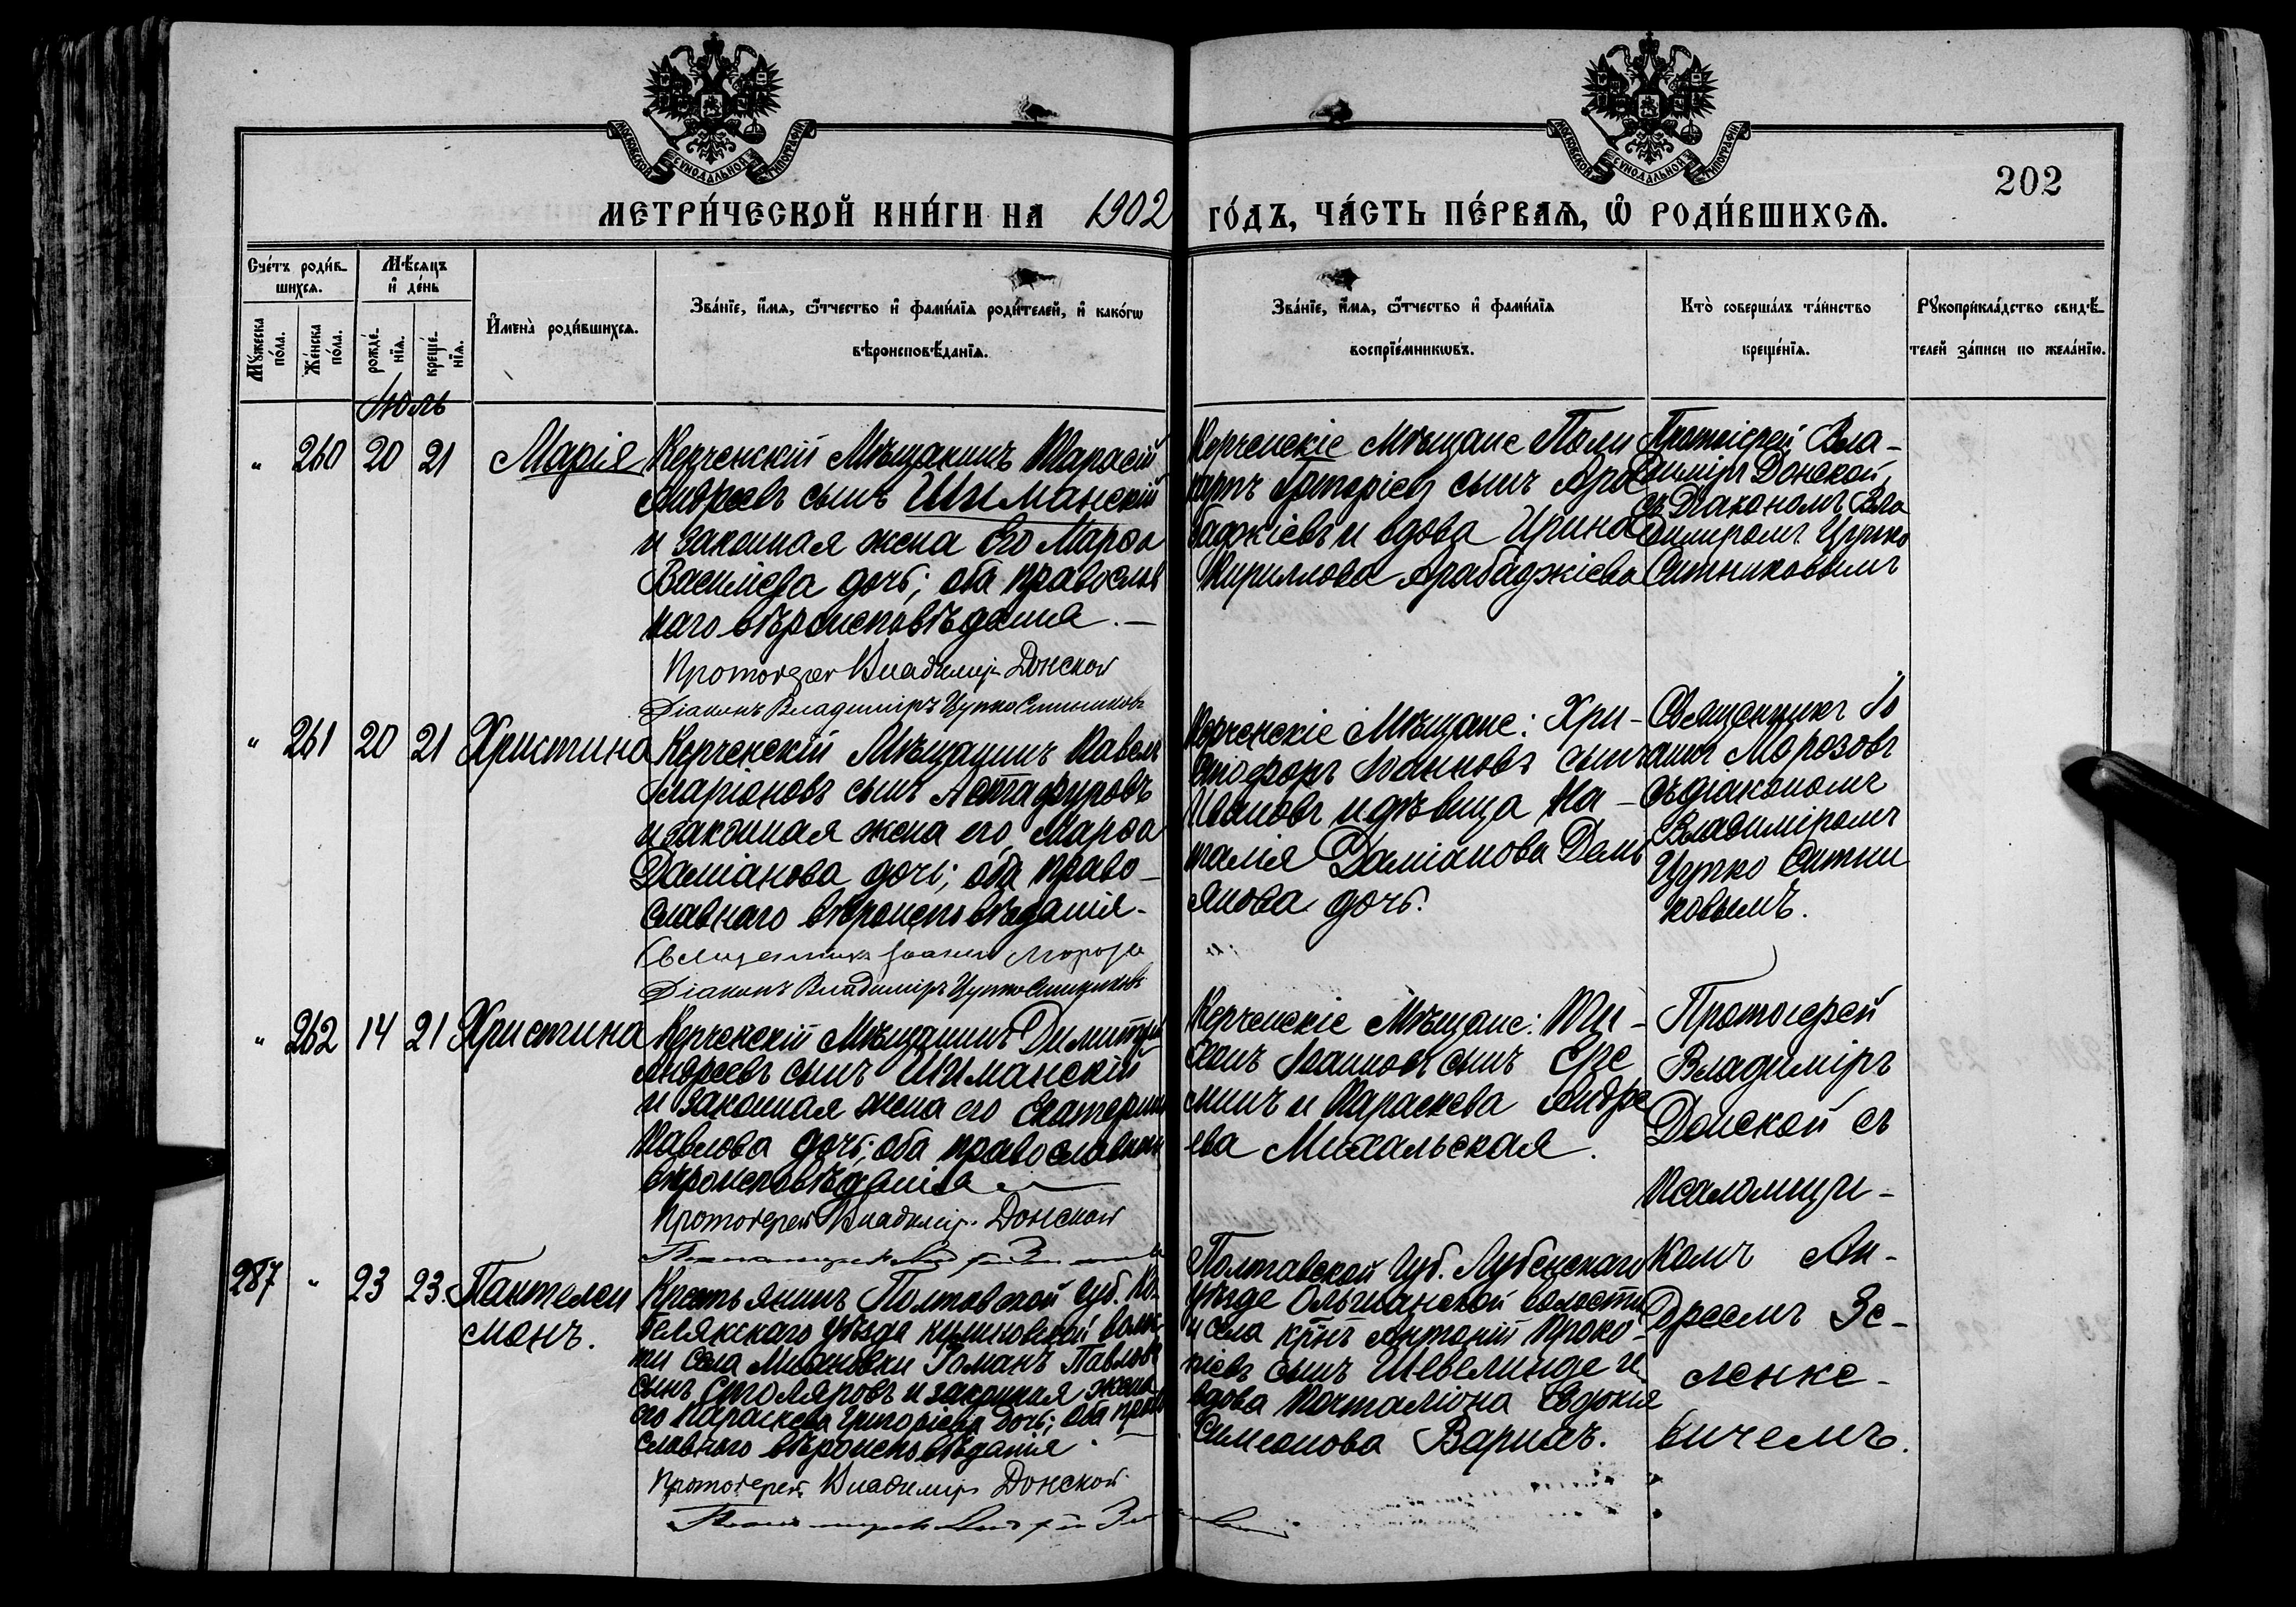 МОСКОВСКОЙ СУНОДАЛЬНОЙ ТИПОГРАФІИ
МОСКОВСКОЙ СУНОДАЛЬНОЙ ТИПОГРАФІИ
202
МЕТРИ́ЧЕСКОЙ КНИ́ГИ НА 1902 ГО́ДЪ, ЧА́СТЬ ПЕ́РВАѦ, Ѡ҆ РОДИ́ВШИХСѦ.
Сче́тъ роди́в-
шихсѧ.
Мꙋ́жеска по́ла.
Же́нска по́ла.
Мѣ́сѧцъ
и҆ де́нь
рожде́-
нїѧ.
креще́-
нїѧ.
И҆мена̀ роди́вшихсѧ.
Зва́нїе, и҆́мѧ, ѻ҆́тчество и҆ фами́лїѧ роди́телей, и҆ како́гѡ
вѣроисповѣ́данїѧ.
Зва́нїе, и҆́мѧ, ѻ҆́тчество и҆ фами́лїѧ
воспрїе́мникѡвъ.
Кто̀ соверша́лъ та́инство
креще́нїѧ.
Рꙋкоприкла́дство свидѣ́-
телей за́писи по жела́нїю.
Іюль
" 260 20 21
Марія
Керченскій Мѣщанинъ Тарасій
Андреевъ сынъ Шиманскій
и законная жена его Марѳа
Василіева дочь; оба православ
наго вѣроисповѣданія.—
Протоіерей Владиміръ Донской
Діаконъ Владиміръ Цупко Ситниковъ
Керченскіе Мѣщане Поли
карпъ Григоріевъ сынъ Ара
баджіевъ и вдова Ирина
Кириллова Арабаджіева
Протоіерей Вла-
диміръ Донской,
съ Діакономъ Вла
диміромъ Цупко
Ситниковымъ
" 261 20 21
Христина
Керченскій Мѣщанинъ Павелъ
Иларіоновъ сынъ Астафуровъ
и законная жена его Марѳа
Даміанова дочь; оба право-
славнаго вѣроисповѣданія.
Священникъ Іоаннъ Морозовъ
Діаконъ Владиміръ Цупко Ситниковъ
Керченскіе Мѣщане: Хри-
стофоръ Іоанновъ сынъ
Ивановъ и дѣвица На-
талія Даміанова Демь
янова дочь.
Священникъ Іо
аннъ Морозовъ
съ діакономъ
Владиміромъ
Цупко Ситни
ковымъ.
" 262 14 21
Христина
Керченскій Мѣщанинъ Димитрій
Андреевъ сынъ Шиманскій
и законная жена его Екатерина
Павлова дочь; оба православнаго
вѣроисповѣданія
Протоіерей Владиміръ Донской
Керченскіе Мѣщане: Ти-
хонъ Іоанновъ сынъ Ере
минъ и Параскева Андре
ева Михальская.
Протоіерей
Владиміръ
Донской съ
Псаломщи-
комъ Ан-
дреемъ Зе-
ленке-
вичемъ.
287 " 23 23.
Пантелеи
монъ.
Крестьянинъ Полтавской губ. Ко-
белякскаго уѣзда волос-
ти села Романъ Павловъ
сынъ Столяровъ и законная жена
его Параскева Григоріева дочь; оба право
славнаго вѣроисповѣданія.
Протоіерей Владиміръ Донской
Полтавской Губ. Лубенскаго
уѣзда Ольшанской волости
и села крнъ Антоній Проко-
піевъ сынъ Шевелинде и
вдова Почталіона Евдокія
Симеонова